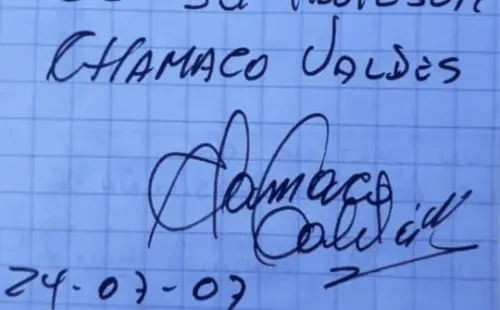 SU PROFESOR
CHAMACO VALDES
Chamaco
Valdés
24-07-07